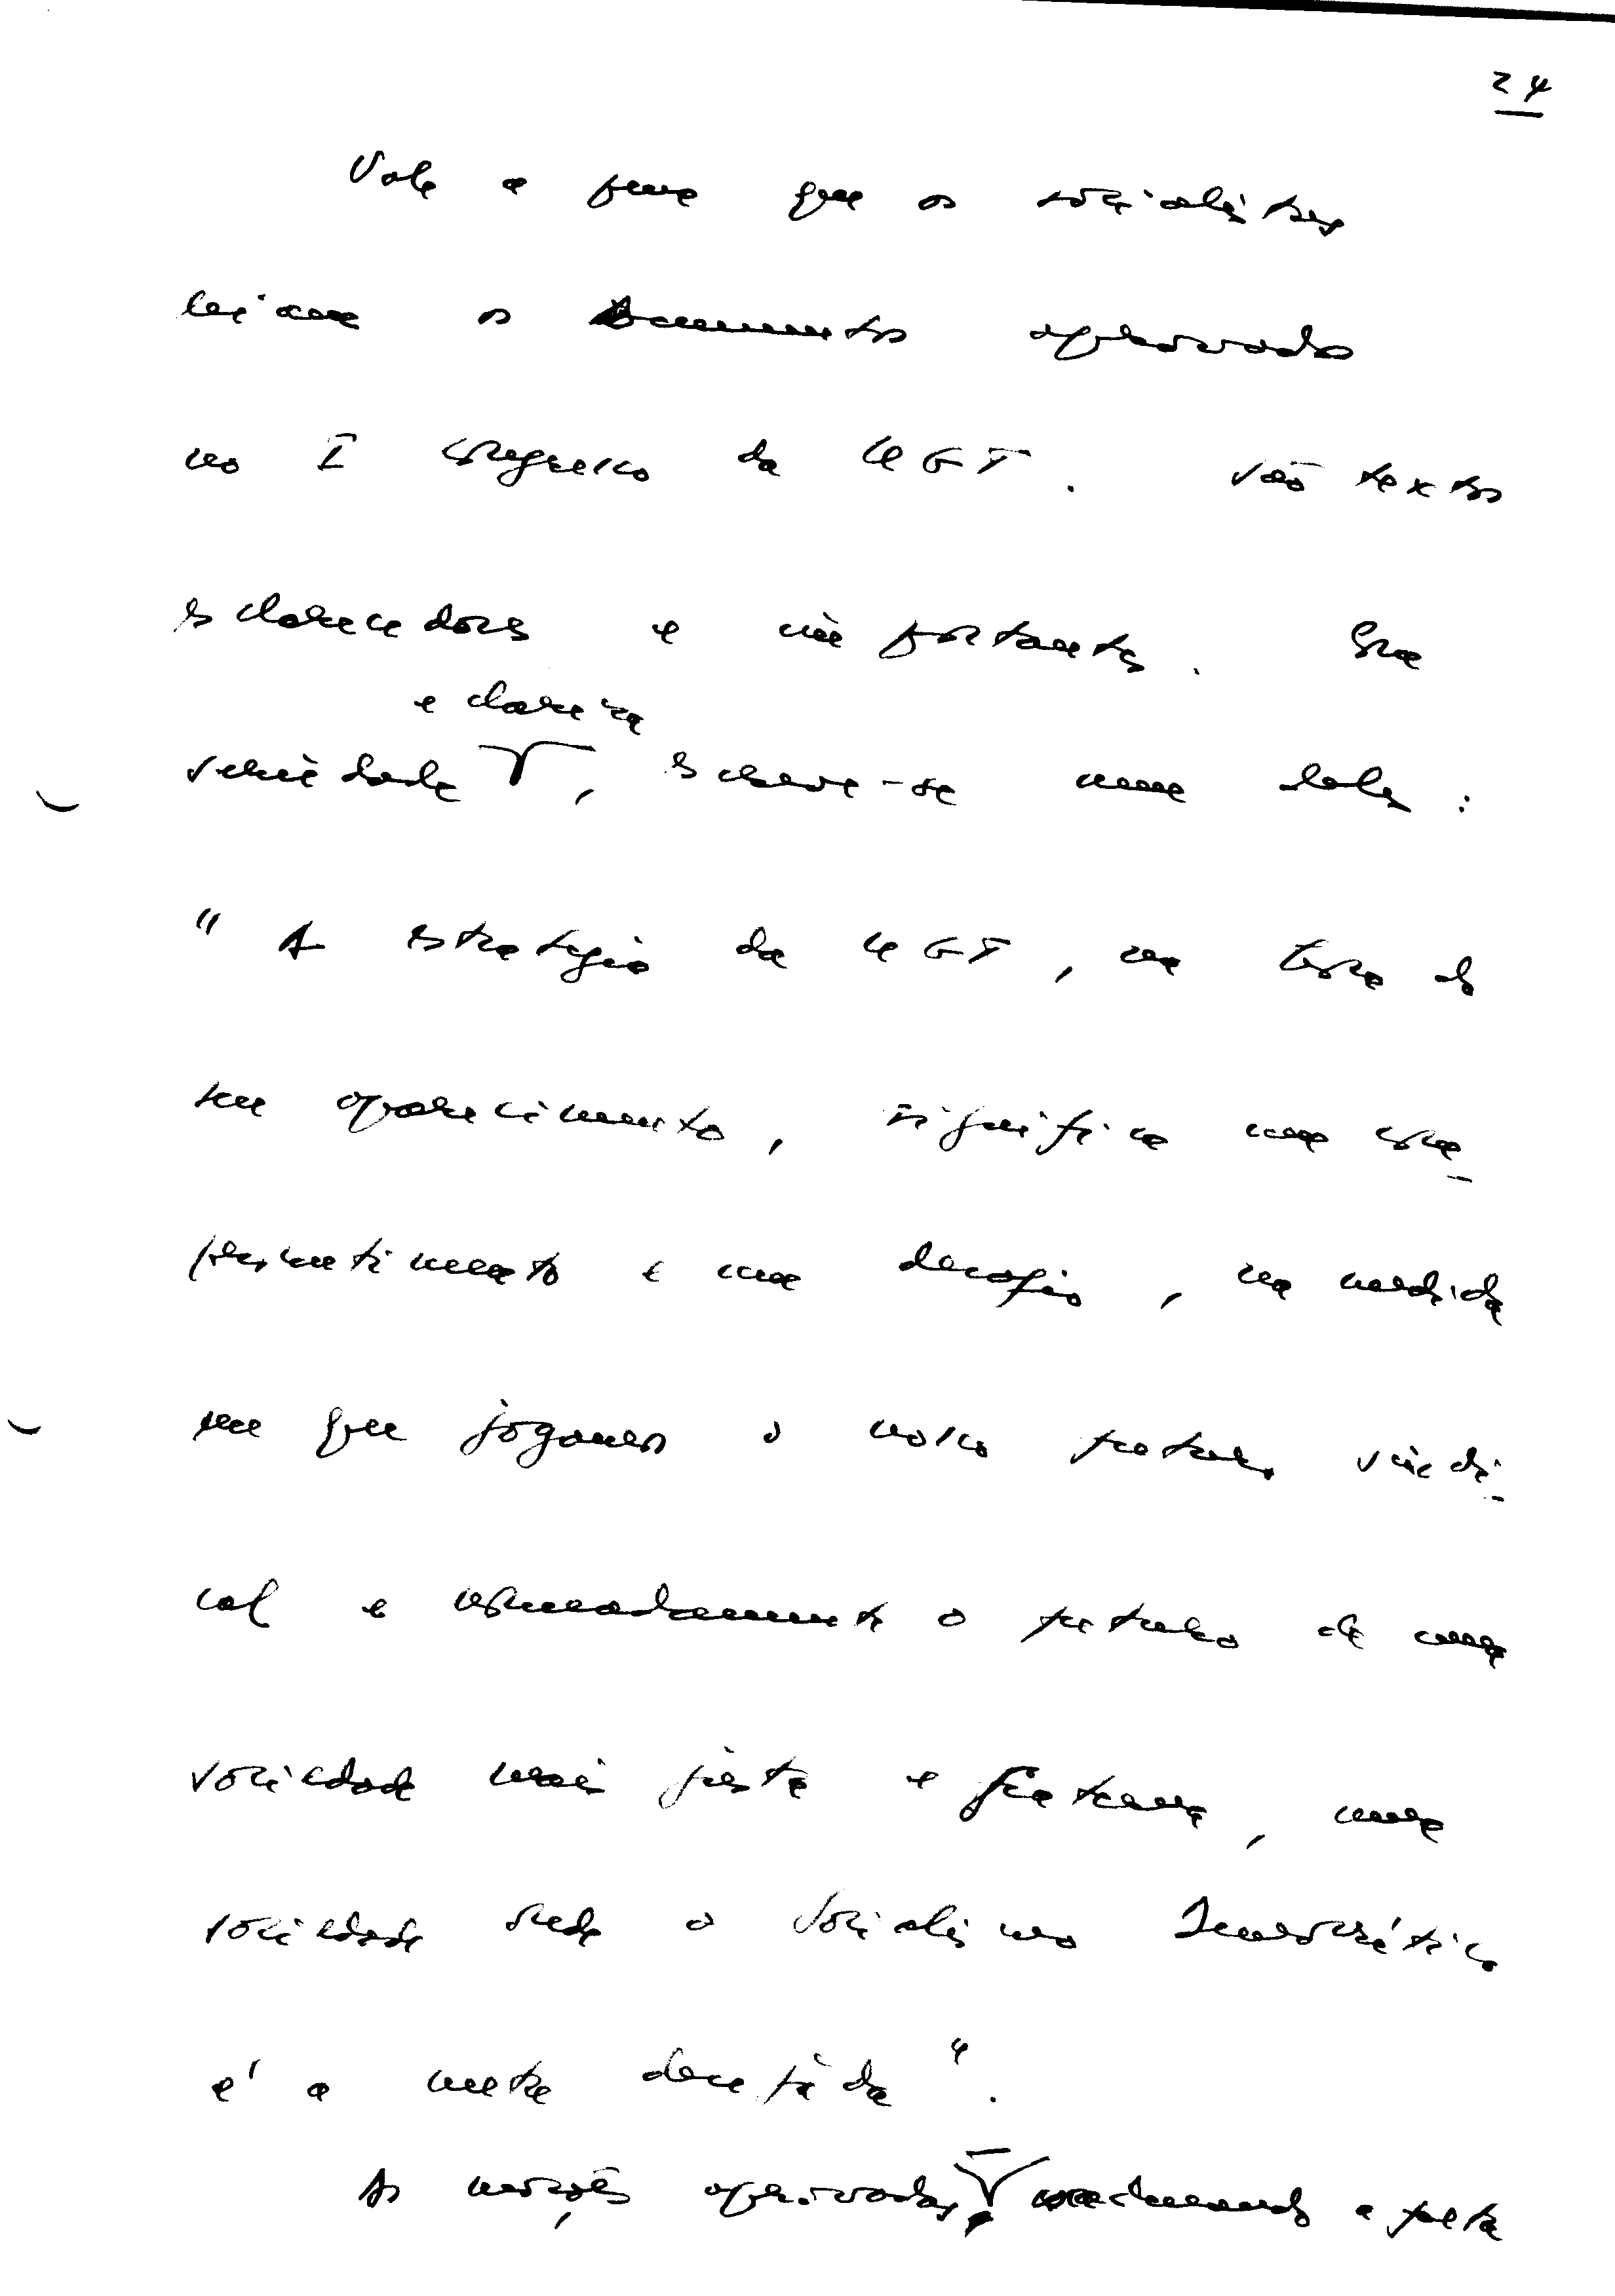 24
Vale a pena que os socialistas
leiam os documentos aprovados
no I Congresso da UGT. São textos
esclarecedores e importantes. Com
e clareza
seriedade, escreve-se num deles:
" A estratégia da UGT, na hora do
seu aparecimento, significa um com-
prometimento e um desafio, na medida
em que jogamos o nosso futuro sindi-
cal e nomeadamente o futuro de uma
sociedade mais justa e fraterna, uma
sociedade onde o Socialismo Democrático
é a meta desejada ".
As moções aprovadas, a